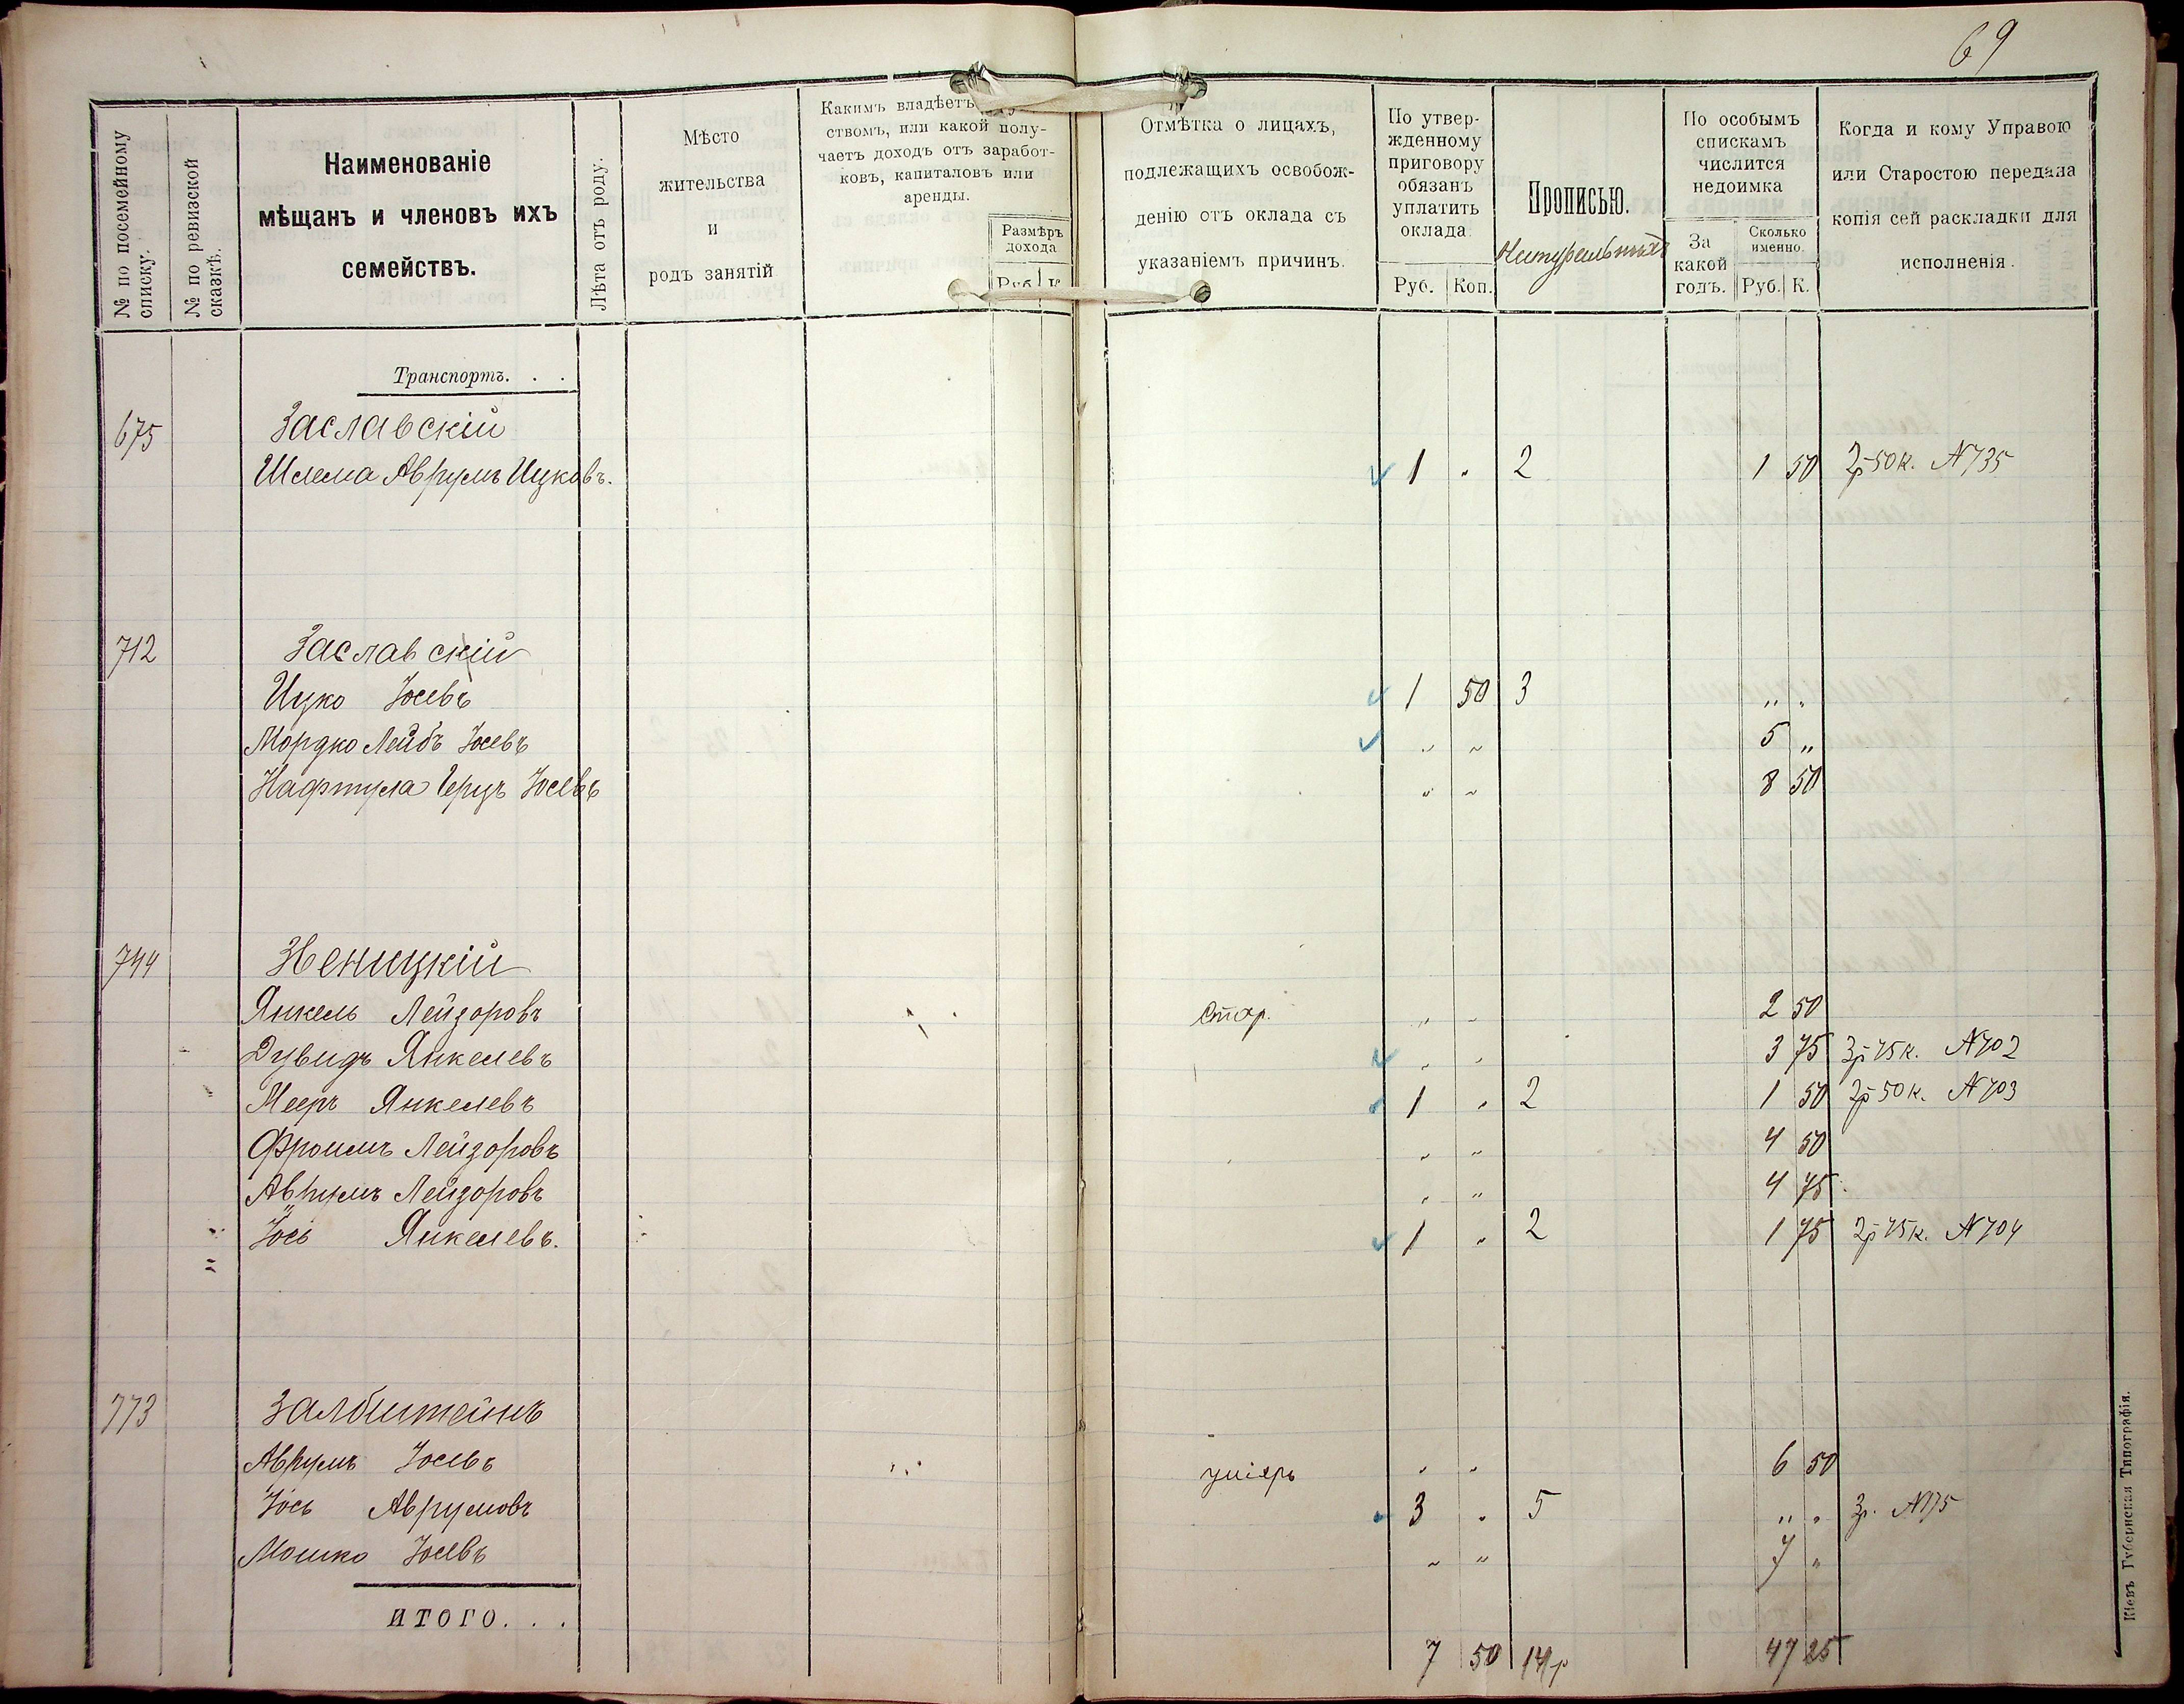 69
№ по посемейному списку.
№ по ревизской сказкѣ.
Наименованіе
мѣщанъ и членовъ ихъ
семействъ.
Лѣта отъ роду.
Мѣсто
жительства
и
родъ занятій
Какимъ владѣетъ
ствомъ, или какой полу-
чаетъ доходъ отъ заработ-
ковъ, капиталовъ или
аренды.
Размѣръ
дохода
Руб. К
Отмѣтка о лицахъ,
подлежащихъ освобож-
денію отъ оклада съ
указаніемъ причинъ.
По утвер-
жденному
приговору
обязанъ
уплатить
оклада
Руб. Коп.
Прописью.
Натуральныхъ
По особымъ
спискамъ
числится
недоимка
За
какой
годъ.
Сколько
именно.
Руб. К.
Когда и кому Управою
или Старостою передана
копія сей раскладки для
исполненія.
Транспортъ. . .
675 Заславскій
Шлема Аврумъ Ицковъ. 1 " 2 1 50 2р 50к. N735
712 Заславскій
Ицко Іосевъ 1 50 3 " "
Мордко Лейбъ Іосевъ " " 5 "
Нафтула Герцъ Іосевъ " " 8 50
744 Звеницкій
Янкель Лейзоровъ Стар. " " 2 50
Дувидъ Янкелевъ " " 3 75 3р 75к. N702
Мееръ Янкелевъ 1 " 2 1 50 2р 50к. N703
Фроимъ Лейзоровъ " " 4 50
Аврумъ Лейзоровъ " " 4 75
Іось Янкелевъ. 1 " 2 1 75 2р 75к. N704
773 Залбштейнъ
Аврумъ Іосевъ умiяръ " " 6 50
Іось Аврумовъ 3 " 5 " " 3р. N175
Мошко Іосевъ " " 7 "
ИТОГО. . .
7 50 14р 47 25
Кіевъ Губернская Типографія.